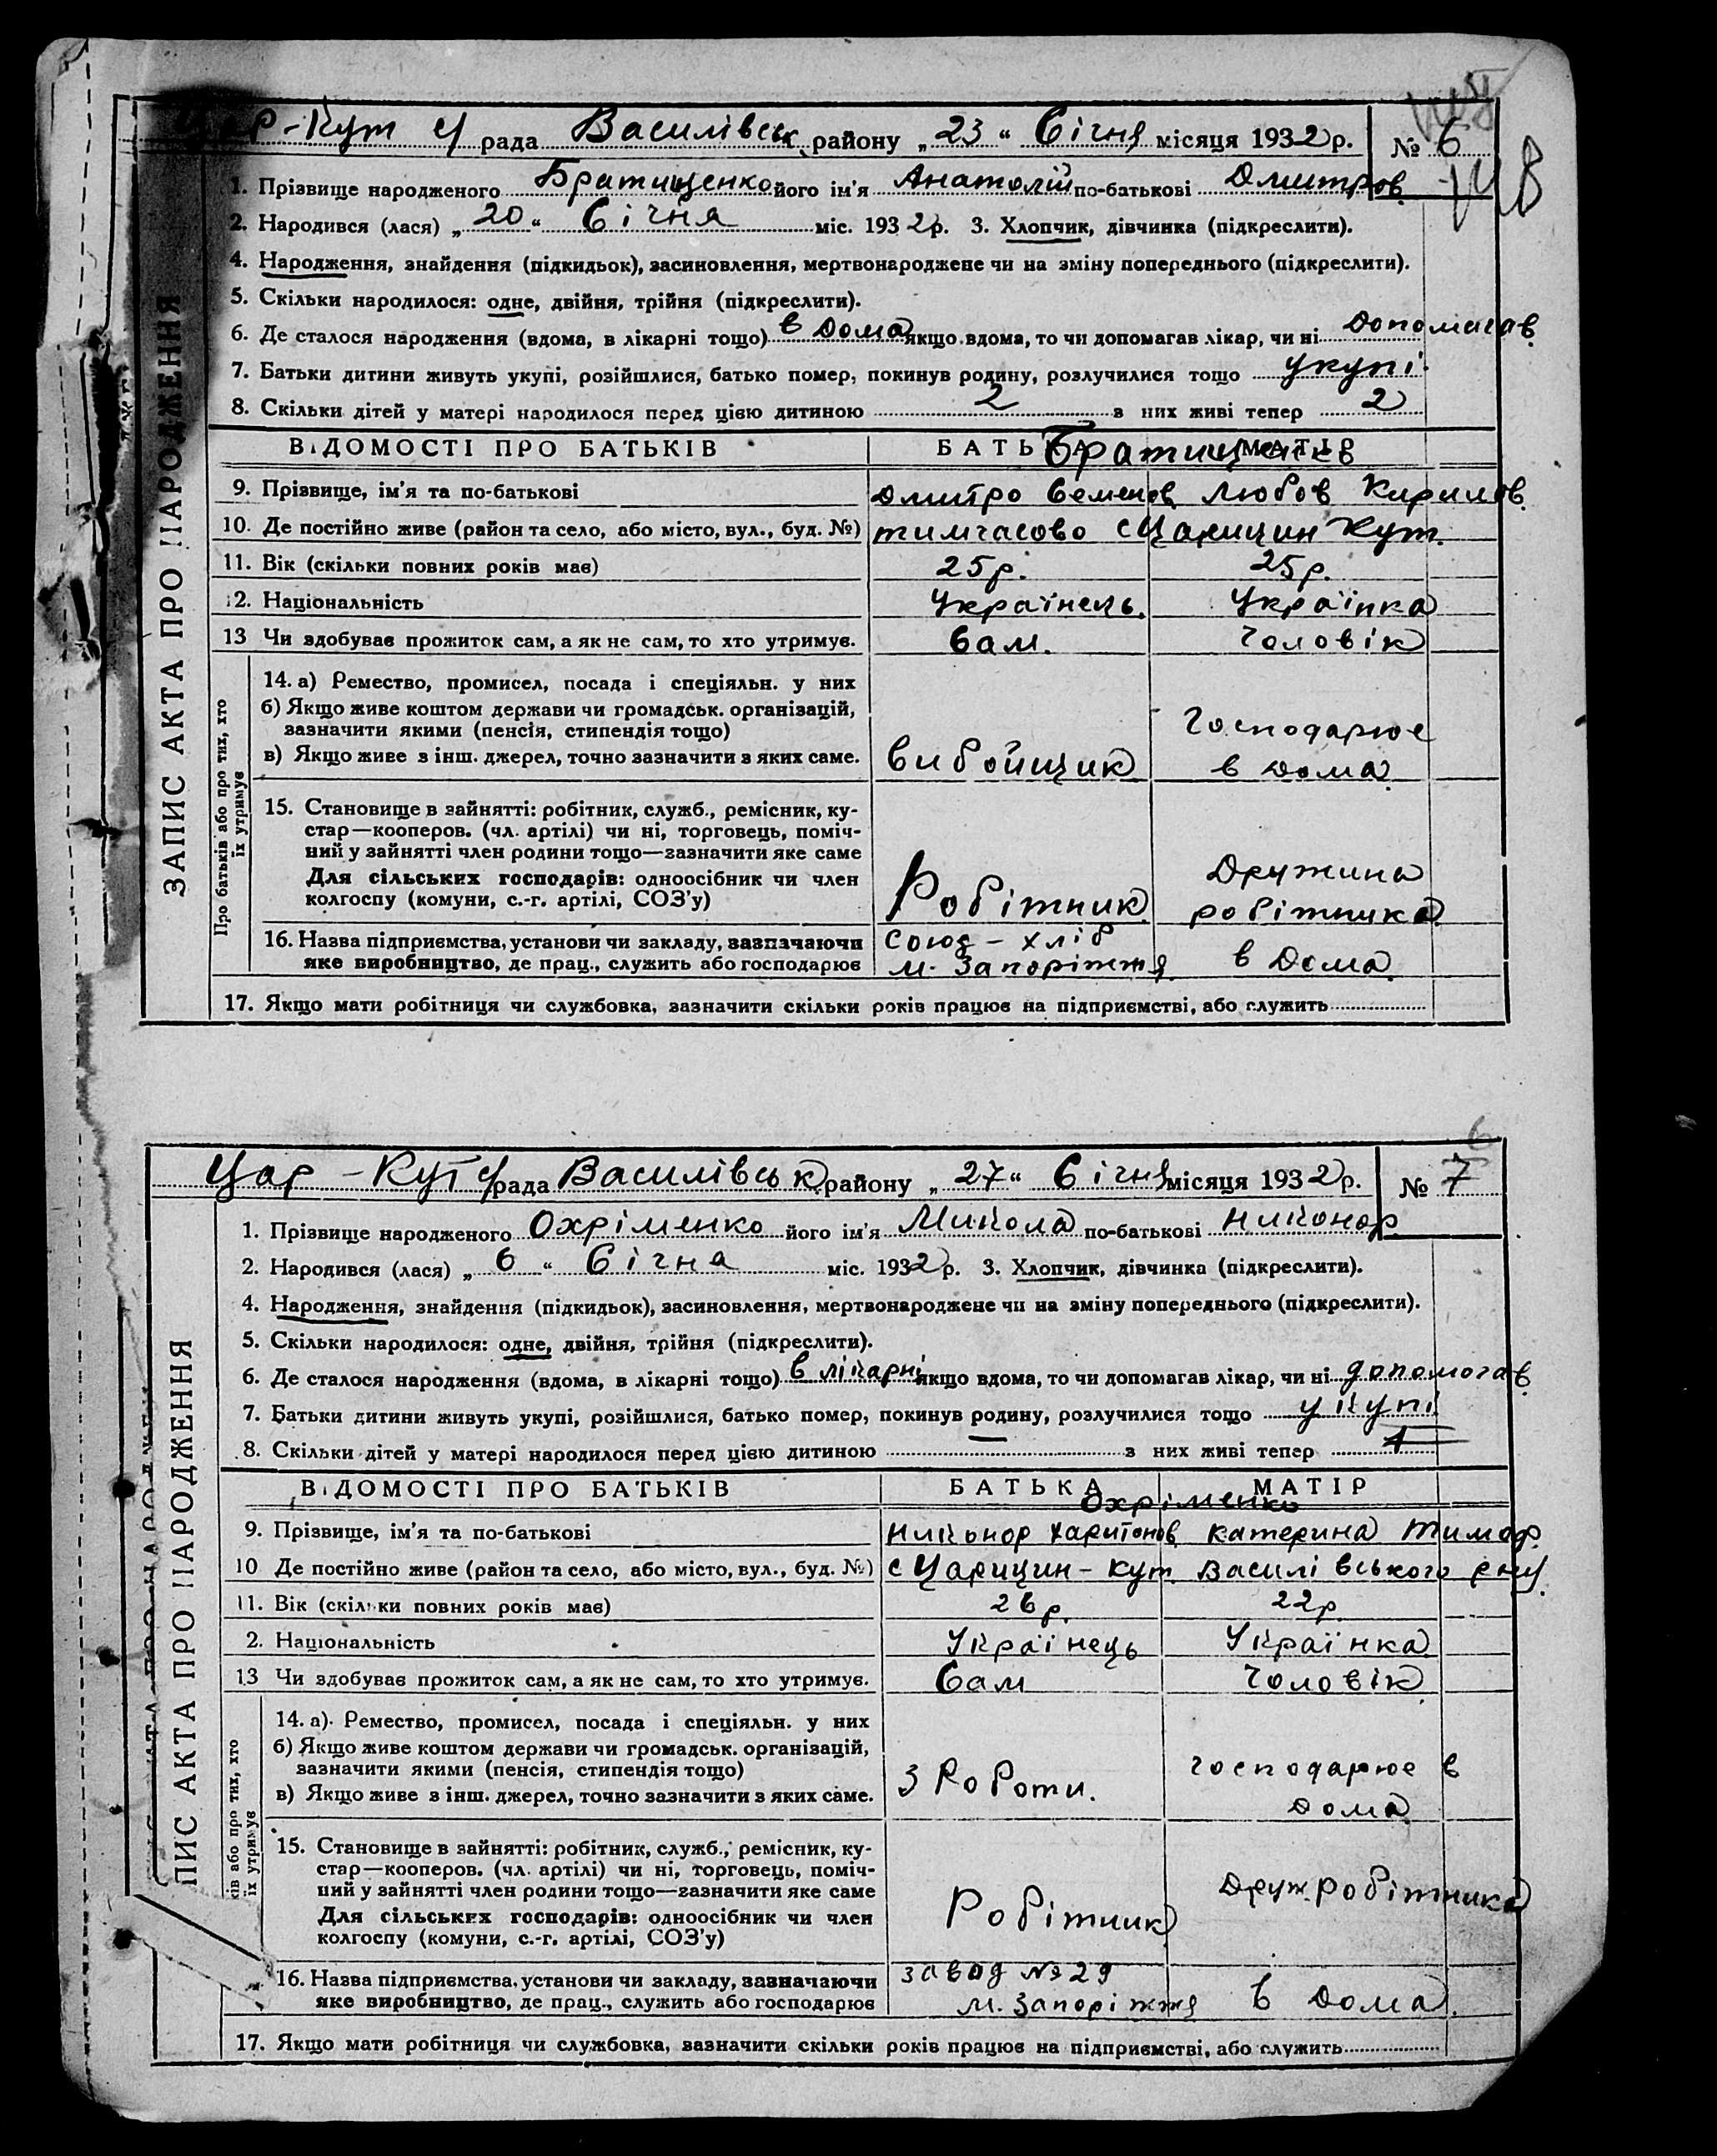 Цар-Кут с/ рада Василівськ. району „23“ Січня місяця 1932 р. № 6
1. Прізвище народженого Братищенко його ім'я Анатолій по-батькові Дмитров.
2. Народився (лася) „20“ Січня міс. 1932 р. 3. Хлопчик, дівчинка (підкреслити).
4. Народження, знайдення (підкидьок), засиновлення, мертвонароджене чи на зміну попереднього (підкреслити).
5. Скільки народилося: одне, двійня, трійня (підкреслити).
6. Де сталося народження (вдома, в лікарні тощо) в дома якщо вдома, то чи допомагав лікар, чи ні допомагав
7. Батьки дитини живуть укупі, розійшлися, батько помер, покинув родину, розлучилися тощо укупі.
8. Скільки дітей у матері народилося перед цією дитиною 2 з них живі тепер 2
ЗАПИС АКТА ПРО НАРОДЖЕННЯ
ВІДОМОСТІ ПРО БАТЬКІВ БАТЬКА МАТІР
Братищенко
9. Прізвище, ім'я та по-батькові Дмитро Семенов Любов Кирилов.
10. Де постійно живе (район та село, або місто, вул., буд. №) тимчасово с Царицин Кут.
11. Вік (скільки повних років має) 25 р. 25 р.
12. Національність Українець. Українка
13 Чи здобуває прожиток сам, а як не сам, то хто утримує. Сам. Чоловік
Про батьків або про тих, хто їх утримує
14. а) Ремество, промисел, посада і спеціяльн. у них
б) Якщо живе коштом держави чи громадськ. організацій,
зазначити якими (пенсія, стипендія тощо)
в) Якщо живе з інш. джерел, точно зазначити з яких саме. вибойщик Господарює
в дома
15. Становище в зайнятті: робітник, служб., ремісник, ку-
стар—кооперов. (чл. артілі) чи ні, торговець, поміч-
ний у зайнятті член родини тощо—зазначити яке саме
Для сільських господарів: одноосібник чи член
колгоспу (комуни, с.-г. артілі, СОЗ'у) Робітник Дружина
робітника
16. Назва підприємства, установи чи закладу, зазначаючи Союз-хліб
яке виробництво, де прац., служить або господарює м. Запоріжжя в дома
17. Якщо мати робітниця чи службовка, зазначити скільки років працює на підприємстві, або служить
Цар-Кут с/рада Василівськ. району „27“ Січня місяця 1932 р. № 7
6
1. Прізвище народженого Охріменко його ім'я Микола по-батькові Никонор.
2. Народився (лася) „6“ Січна міс. 1932 р. 3. Хлопчик, дівчинка (підкреслити).
4. Народження, знайдення (підкидьок), засиновлення, мертвонароджене чи на зміну попереднього (підкреслити).
5. Скільки народилося: одне, двійня, трійня (підкреслити).
6. Де сталося народження (вдома, в лікарні тощо) в лікарні якщо вдома, то чи допомагав лікар, чи ні допомогав
7. Батьки дитини живуть укупі, розійшлися, батько помер, покинув родину, розлучилися тощо укупі
8. Скільки дітей у матері народилося перед цією дитиною з них живі тепер 1
ПИС АКТА ПРО НАРОДЖЕННЯ
ВІДОМОСТІ ПРО БАТЬКІВ БАТЬКА МАТІР
Охріменко
9. Прізвище, ім'я та по-батькові Никонор Харитонов Катерина Тимоф.
10 Де постійно живе (район та село, або місто, вул., буд. №) с Царицин-Кут. Василівського р-ну.
11. Вік (скільки повних років має) 26 р. 22 р.
2. Національність Українець Українка
13 Чи здобуває прожиток сам, а як не сам, то хто утримує. Сам Чоловік
ків або про тих, хто їх утримує
14. а). Ремество, промисел, посада і спеціяльн. у них
б) Якщо живе коштом держави чи громадськ. організацій,
зазначити якими (пенсія, стипендія тощо)
в) Якщо живе з інш. джерел, точно зазначити з яких саме. З Роботи. Господарює в
дома
15. Становище в зайнятті: робітник, служб., ремісник, ку-
стар—кооперов. (чл. артілі) чи ні, торговець, поміч-
ний у зайнятті член родини тощо—зазначити яке саме
Для сільських господарів: одноосібник чи член
колгоспу (комуни, с.-г. артілі, СОЗ'у) Робітник Друж. робітника
16. Назва підприємства, установи чи закладу, зазначаючи завод № 29
яке виробництво, де прац., служить або господарює м. Запоріжжя в дома.
17. Якщо мати робітниця чи службовка, зазначити скільки років працює на підприємстві, або служить